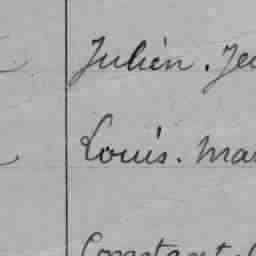 Julien. Je
Louis. Mar
Constant